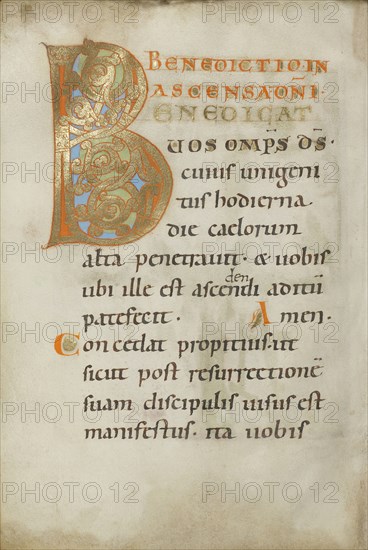 BENEDICTIO IN
ASCENSA DÑI ·
BENEDICAT
UOS OMP̄S D̄S ·
cuius unigeni
tus hodierna
die caelorum
alta penetrauit · & uobis
ubi ille est ascendendi aditū
patefecit · Amen ·
Concedat propitius · ut
sicut post resurrectionē
suam discipulis uisus est
manifestus · ita uobis